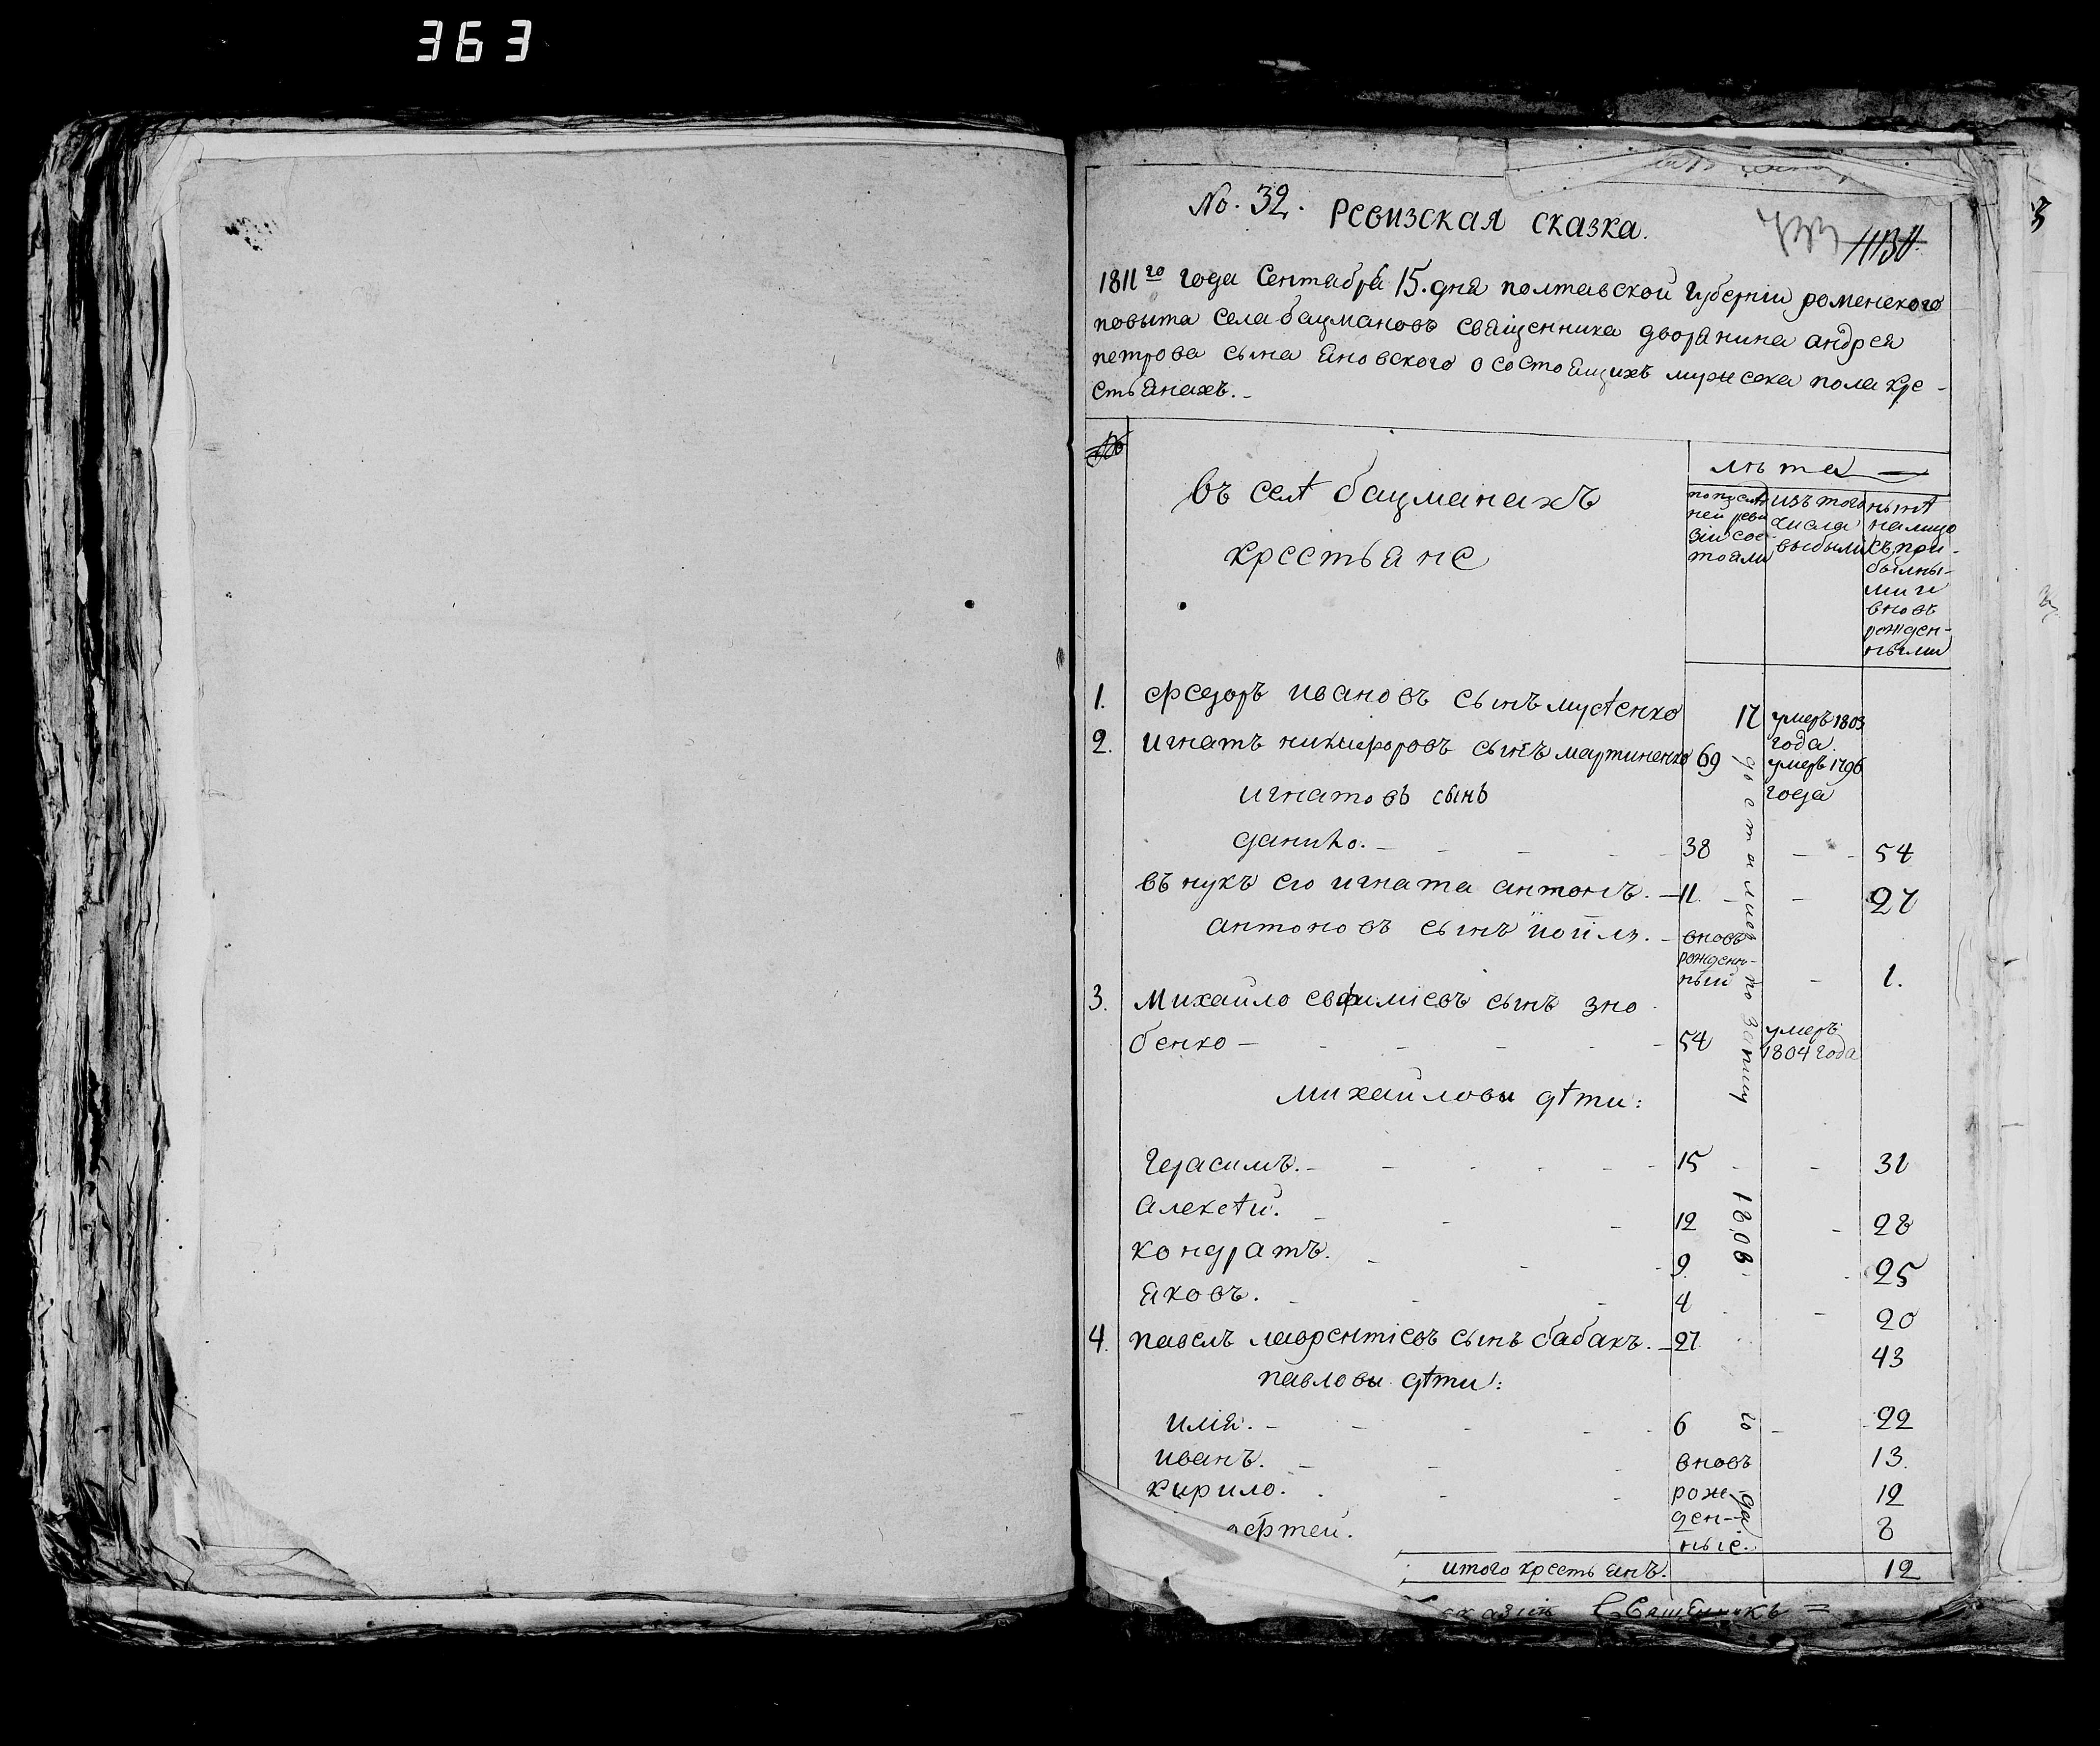 363
No. 32. РЕВИЗСКАЯ СКАЗКА.
433 1130
1811го года Сентября 15. дня полтавской губернии роменского
повыта села бацмановъ священника дворянина андрея
петрова сына яновского о состоящихъ мужеска пола кре-
стьянахъ.-
№
въ селѣ бацманахъ
крестьяне
лѣта
по послѣдней ревизіи состояли
изъ того числа выбыли
нынѣ на лицо съ прибылными и вновь рожденными
1. федоръ ивановъ сынъ мусѣенко 17 умеръ 1803 года.
2. игнатъ никифоровъ сынъ мартиненко 69 умеръ 1796 года
игнатовъ сынъ
данило. - 38 - - 54
внукъ его игната антонъ. - 11. - - 27
антоновъ сынъ - вновь рожденный - 1.
3. Михайло евфимїевъ сынъ зно
бенко - 54 умеръ 1804 года
михайловы дѣти:
Герасимъ. - 15 - - 31
алексѣй. - 12 - 28
кондратъ. - 9. - 25
яковъ. - 4 - 20
4. павелъ лаврентїевъ сынъ бабакъ. - 27 43
павловы дѣти:
илїя. - 6 - 22
иванъ. - вновь 13.
кирило. - рож- 12
ефтей. ден- 8
ные.
достались по запису 1808. го да
итого крестьянъ. 12
Священикъ =
3